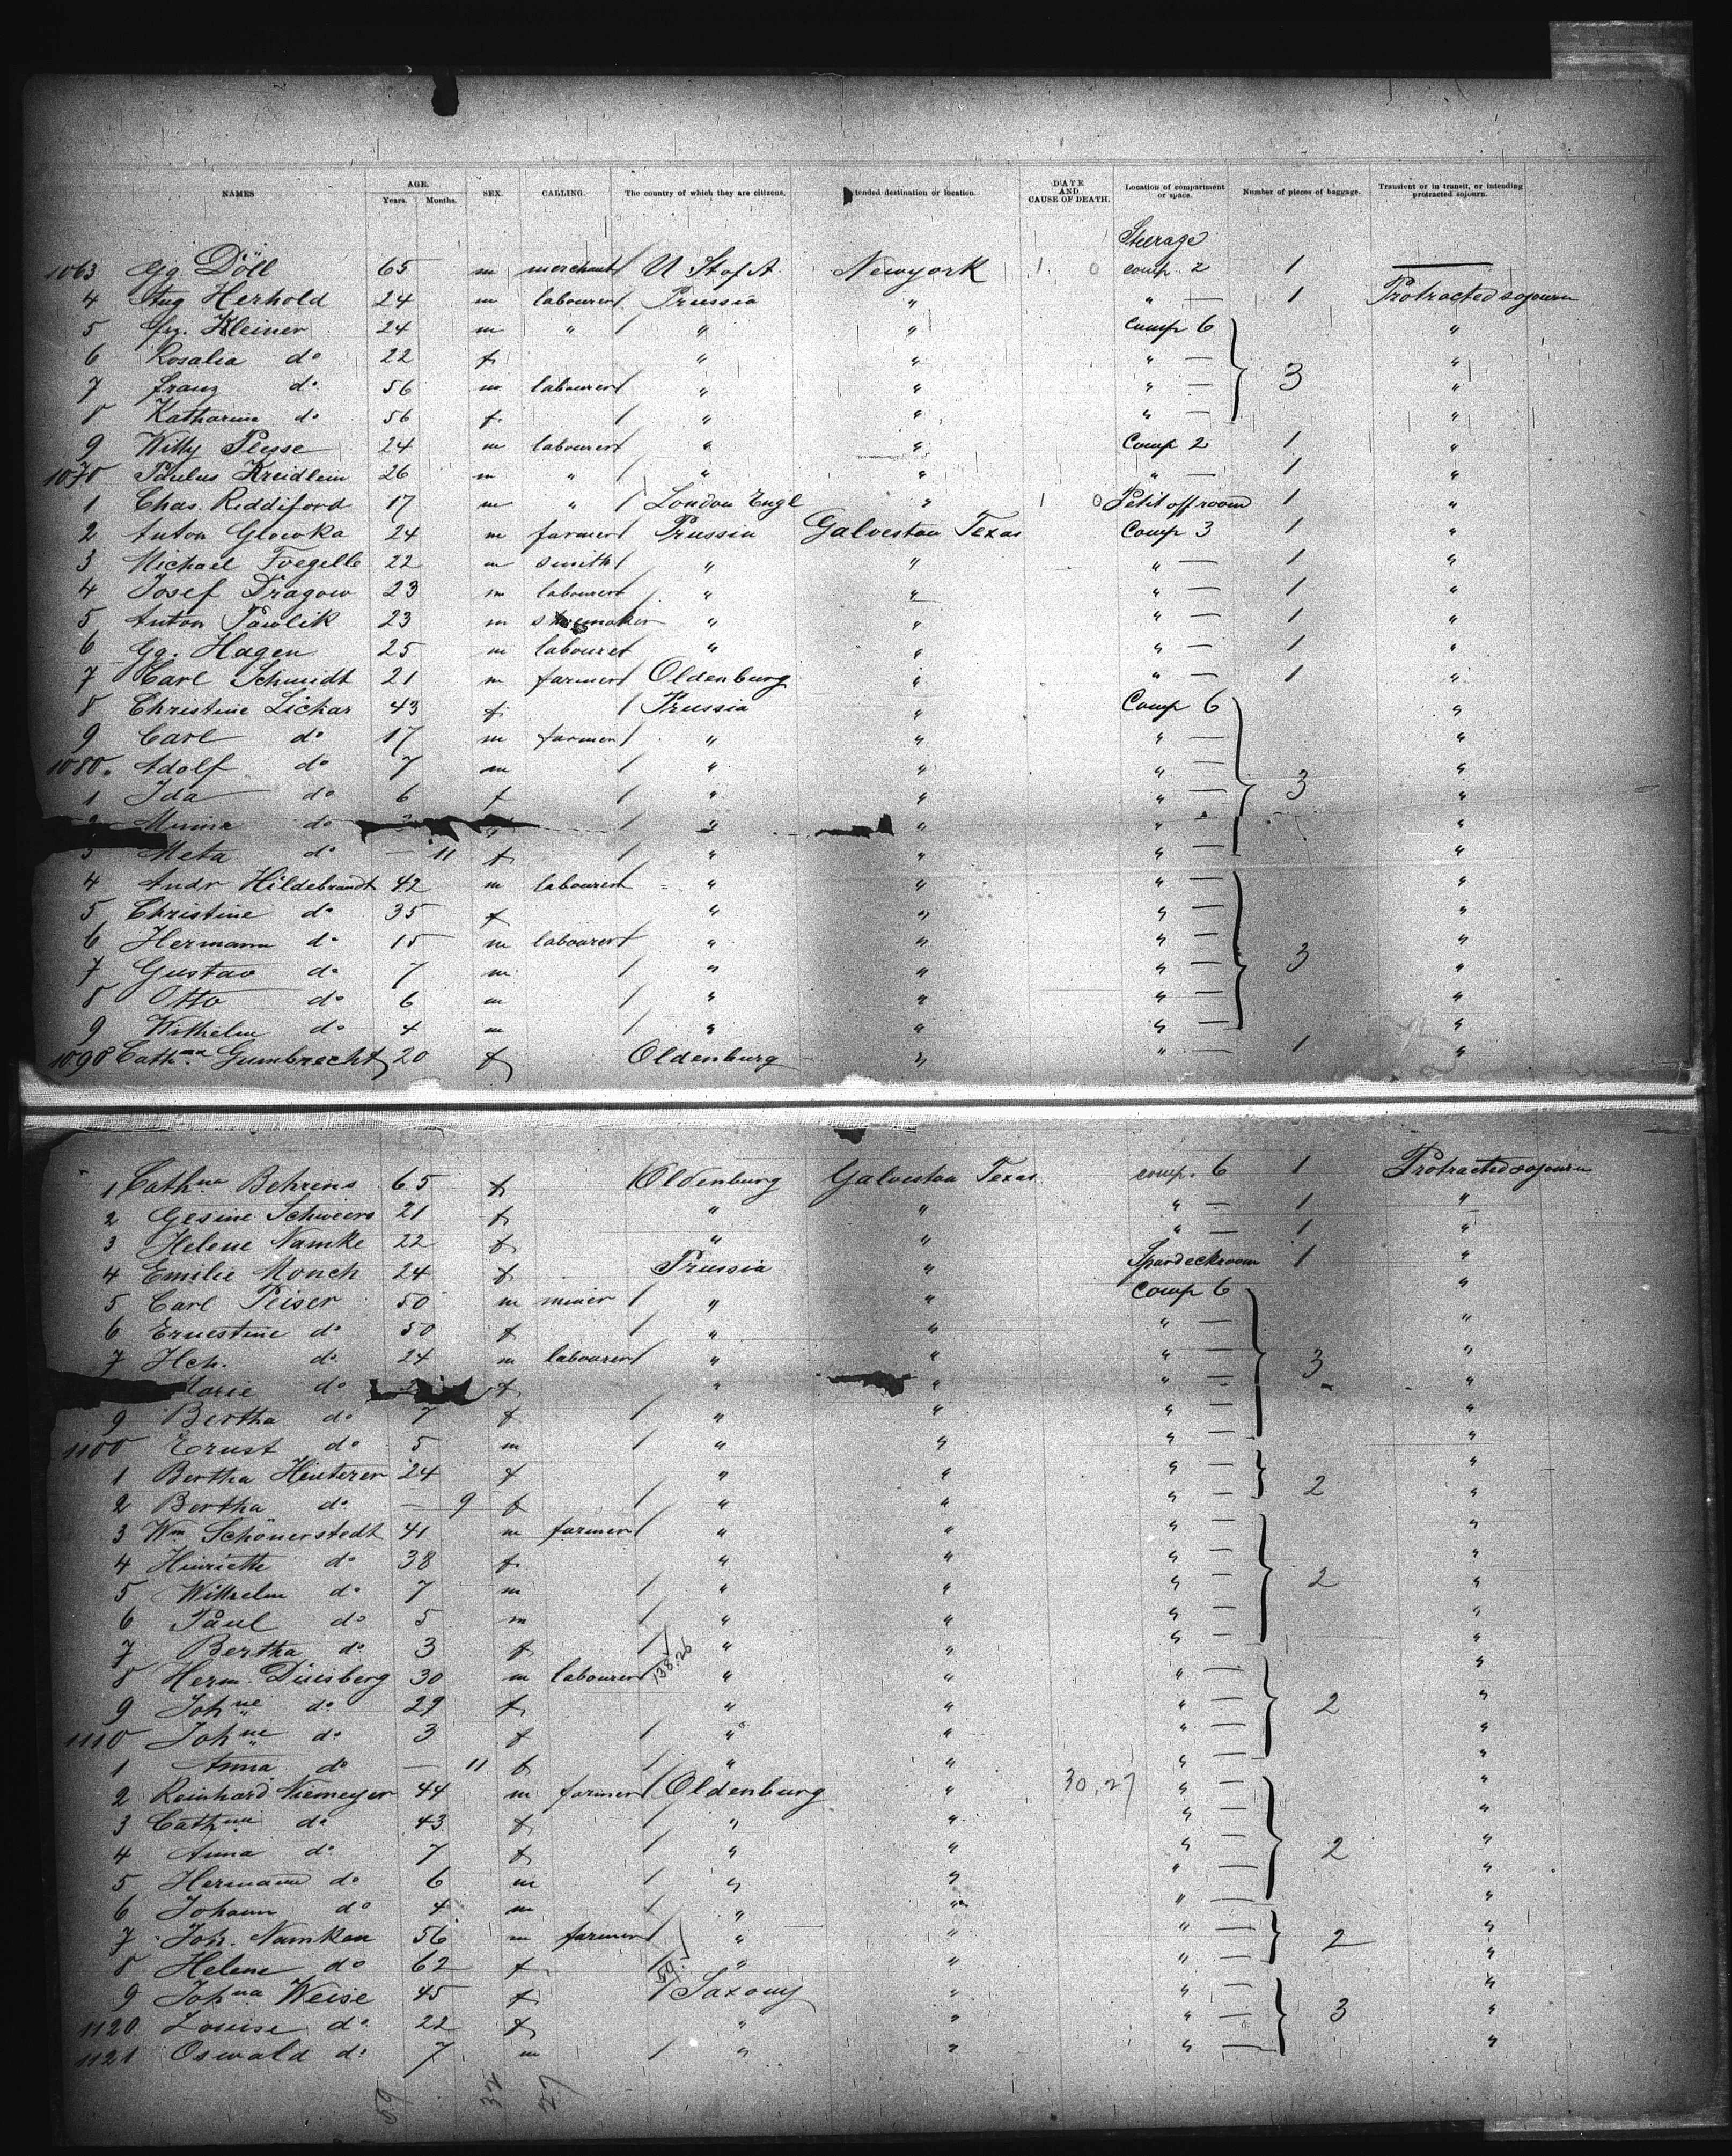 NAMES AGE. Years. Months. SEX. CALLING. The country of which they are citizens. tended destination or location. DATE AND CAUSE OF DEATH. Location of compartment or space. Number of pieces of baggage. Transient or in transit, or intending protracted sojourn.
Steerage
1063 Gg Döll 65 m merchant / U St of A. Newyork 1 0 comp. 2 1 —
4 Aug Herhold 24 m labourer / Prussia " " — 1 Protracted sojourn
5 Kleiner 24 m " / " " Comp 6 "
6 Rosalia do 22 f " " " — "
7 Franz do 56 m labourer / " " " — 3 "
8 Katharina do 56 f / " " " — "
9 Willy 24 m labourer / " " Comp 2 1 "
1070 Paulus Kreidlein 26 m " / " " " — 1 "
1 Chas. Riddiford 17 m " / London Engl " 1 0 Petit off room 1 "
2 Anton Glowka 24 m farmer / Prussia Galveston Texas Comp 3 1 "
3 Michael 22 m smith / " " " — 1 "
4 Josef Dragow 23 m labourer / " " " — 1 "
5 Anton Pawlik 23 m shoemaker " " " — 1 "
6 Gg. Hagen 25 m labourer " " " — 1 "
7 Carl Schmidt 21 m farmer / Oldenburg " " — 1 "
8 Christine Lickar 43 f / Prussia " Comp 6 "
9 Carl do 17 m farmer / " " " — "
1080. Adolf do 7 m / " " " — "
1 Ida do 6 f / " " " — 3 "
do / " " " — "
3 Meta do — 11 f / " " " — "
4 Andr Hildebrandt 42 m labourer " " " — "
5 Christine do 35 f " " " — "
6 Hermann do 15 m labourer / " " " — "
7 Gustav do 7 m / " " " — 3 "
8 Otto do 6 m / " " " — "
9 Wilhelm do 4 m / " " " — "
1090 Cathna Gumbrecht 20 f Oldenburg " " — 1 "
1 Cathna Behrens 65 f Oldenburg Galveston Texas comp. 6 1 Protracted sojourn
2 Gesine Schweers 21 f " " " — 1 "
3 Helene Namke 22 f " " " — 1 "
4 Emilie Monch 24 f Prussia " Spardeckroom 1 "
5 Carl Peiser 50 m miner / " " Comp 6 "
6 Ernestine do 50 f / " " " — "
7 Hch. do 24 m labourer / " " " — 3 "
Marie do f " " " — "
9 Bertha do 7 f / " " " — "
1100 Ernst do 5 m / " " " — "
1 Bertha Hinterer 24 f " " " — 2 "
2 Bertha do — 9 f / " " " — "
3 Wm Schönerstedt 41 m farmer / " " " — "
4 Henriette do 38 f " " " — "
5 Wilhelm do 7 m / " " " — 2 "
6 Paul do 5 m / " " " — "
7 Bertha do 3 f / " " " — "
8 Herm. Duisberg 30 m labourer / 138.26 " " " — "
9 Johne do 29 f " " " — 2 "
1110 Johne do 3 f / " " " — "
1 Anna do — 11 f / " " " — "
2 Reinhard Niemeyer 44 m farmer / Oldenburg " 30,27 " — "
3 Cathna do 43 f / " " " — "
4 Anna do 7 f / " " " — 2 "
5 Hermann do 6 m / " " " — "
6 Johann do 4 m / " " " — "
7 Joh. Namken 56 m farmer / " " " — 2 "
8 Helene do 62 f / " " " — "
9 Johna Weise 45 f / Saxony " " — "
1120 Louise do 22 f " " " — 3 "
1121 Oswald do 7 m / " " " — "
59 32 27